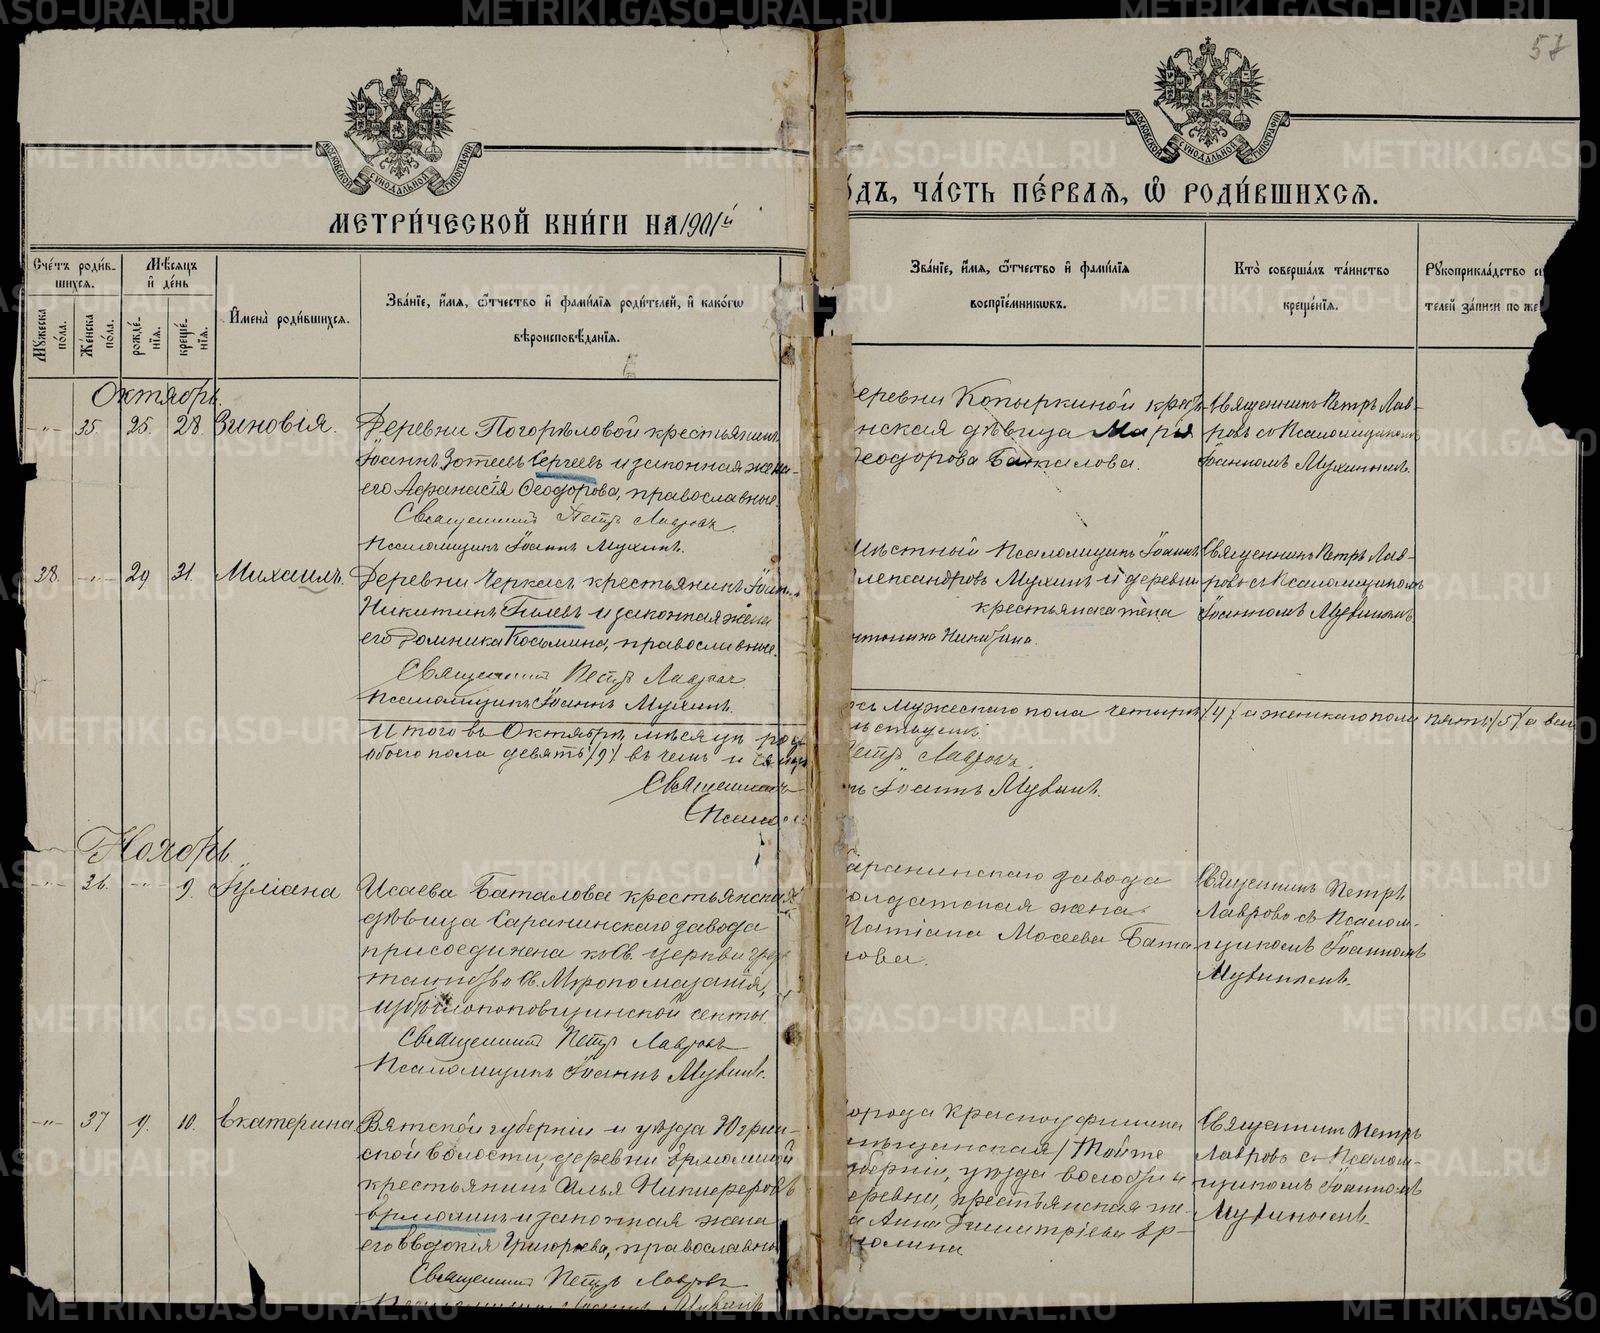 57
МОСКОВСКОЙ СѴНОДАЛЬНОЙ ТИПОГРАФІИ
МОСКОВСКОЙ СѴНОДАЛЬНОЙ ТИПОГРАФІИ
МЕТРИ́ЧЕСКОЙ КНИ́ГИ НА 1901й
ОДЪ, ЧА́СТЬ ПЕ́РВАѦ, Ѽ РОДИ́ВШИХСѦ.
Сче́тъ роди́в-
шихсѧ.
Мꙋжеска по́ла.
Же́нска по́ла.
Мѣ́сѧцъ
и҆ де́нь
рожде́-
нїѧ.
креще́-
нїѧ.
И҆мена̀ роди́вшихсѧ.
Зва́нїе, и҆́мѧ, ѻ҆́тчество и҆ фами́лїѧ роди́телей, и҆ како́гѡ
вѣроисповѣ́данїѧ.
Зва́нїе, и҆́мѧ, ѻ҆́тчество и҆ фами́лїѧ
воспрїе́мникѡвъ.
Кто̀ соверша́лъ та́инство
креще́нїѧ.
Рꙋкоприкла́дство
телей за́писи по же
Октябрь
-"- 35. 25. 28. Зиновія.
Деревни Погорѣловой крестьянинъ
Іоаннъ Зотеевъ Сергеевъ и законная жена
его Афанасія Ѳеодорова, православные.
Священникъ Петръ Лавровъ.
Псаломщикъ Іоаннъ Мухинъ.
еревни Копыркиной кресть-
нская дѣвица Марія
еодорова Баталова.
Священникъ Петръ Лав-
ровъ съ Псаломщикомъ
Іоанномъ Мухинымъ.
28. -"- 29 31. Михаилъ.
Деревни Черкасъ крестьянинъ Іоаннъ
Никитинъ и законная жена
его Домника Косьмина, православные.
Священникъ Петръ Лавровъ
Псаломщикъ Іоаннъ Мухинъ.
мѣстный Псаломщикъ Іоаннъ
лександровъ Мухинъ и деревни
крестьянская
Священникъ Петръ Лав-
ровъ съ Псаломщикомъ
Іоанномъ Мухинымъ.
Итого въ Октябрѣ мѣсяцѣ род
обоего пола девять /9/ въ чемъ и
Священникъ
Псало
мужескаго пола четыре /4/ и женскаго пола пять /5/ а все
Петръ Лавровъ.
Іоаннъ Мухинъ.
Ноябрь
-"- 36. -"- 9. Іуліана
Исаева Баталова крестьянская
дѣвица Саранинскаго завода
присоединена ко Св. церкви чрез
таинство Св. Мѵропомазанія,
Священникъ Петръ Лавровъ
Псаломщикъ Іоаннъ Мухинъ.
аранинскаго завода
олдатская жена
Татіана Мосеева Бата-
лова.
Священникъ Петръ
Лавровъ съ Псалом-
щикомъ Іоанномъ
Мухинымъ.
-"- 37 9. 10. Екатерина
Вятской губерніи и уѣзда Югрин-
ской волости, деревни Ермолиной
крестьянинъ Илья Никифоровъ
Ермолинъ и законная жена
его Евдокія Григорьева, православны
Священникъ Петръ Лавровъ
Псаломщикъ Іоаннъ Мухинъ
орода Красноуфимска
мѣщанская / Той же
уберніи, уѣзда волости и
еревни, крестьянская же-
на Анна Димитріева Ер-
молина
Священникъ Петръ
Лавровъ съ Псалом-
щикомъ Іоанномъ
Мухинымъ.
METRIKI.GASO-URAL.RU